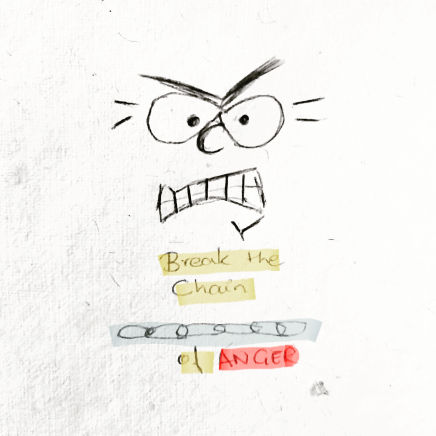 Break the
Chain
of ANGER